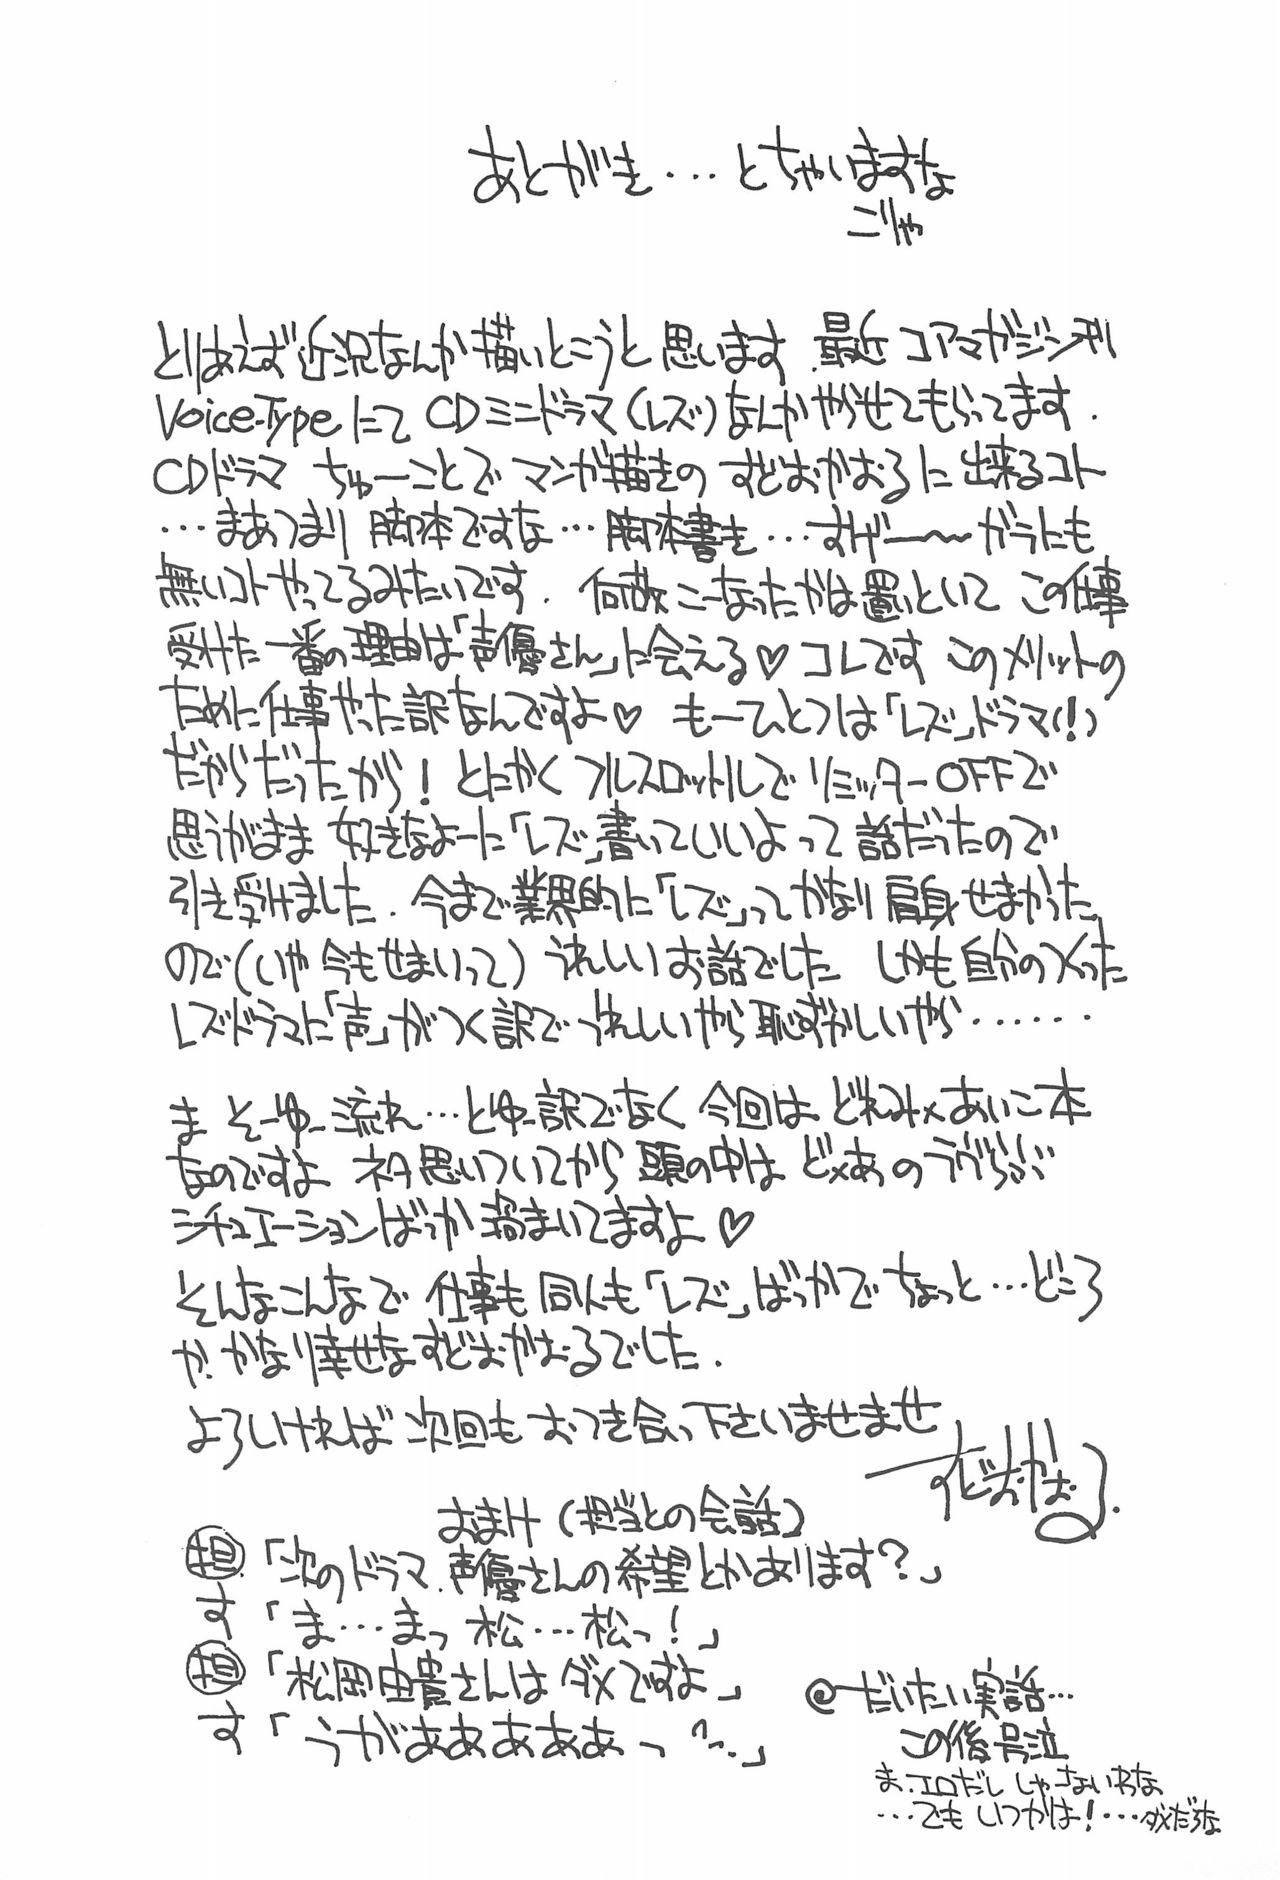 あとがき…とちゃいますな
こりゃ
とりあえず近況なんか描いとこうと思います.最近コアマガジン刊
Voice-Typeにて CDミニドラマ(レズ)なんかやらせてもらってます.
CDドラマ ちゅーことで マンガ描きの すどおかおるに 出来るコト
…まあつまり 脚本ですな…脚本書き…すげー〜 がらにも
無いコトやってるみたいです. 何故こーなったかは置いといて この仕事
受けた 一番の理由は「声優さん」に会える♡ コレです このメリットの
ために仕事やった訳なんですよ♡ もーひとつは「レズ」ドラマ(!)
だからだったから! とにかく フルスロットルで リミッターOFFで
思うがまま 好きなよーに「レズ」書いていいよって 話だったので
引き受けました. 今まで業界的に「レズ」ってかなり 肩身せまかった
ので(いや 今もせまいって) うれしいお話でした しかも 自分のつくった
レズドラマに「声」がつく訳で うれしいやら 恥ずかしいやら……
ま そーゆー流れ…とゆー訳でなく 今回は どれみ×あいこ本
なのですよ ネタ思いついてから 頭の中は ど×あ のラヴラヴ
シチュエーションばっか 渦まいてますよ♡
そんなこんなで 仕事も 同人も「レズ」ばっかで ちょっと…どころ
か かなり幸せな すどおかおるでした.
よろしければ 次回も おつき合い下さいませませ
すどおかおる.
おまけ(担当との会話)
担「次のドラマ.声優さんの希望とかあります?」
す「ま…まっ 松…松っ!」
担「松岡由貴さんは ダメですよ」
す「うがぁぁぁぁぁっ」
@だいたい実話…
この後号泣
ま.エロだし しゃーないわな
…でも いつかは!…ダメだろな